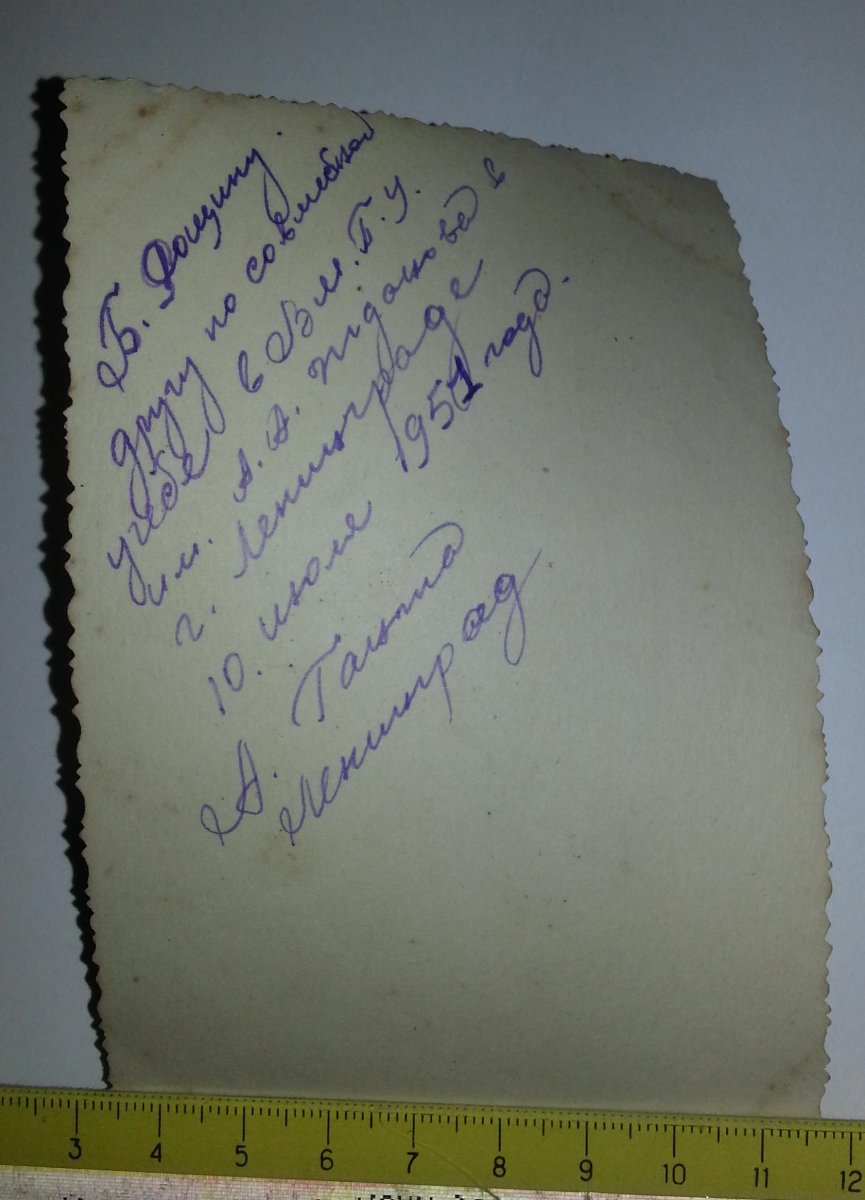 Б. Рощину.
другу по совместной
учёбе в В.М.Г.У.
им. А.А. Жданова в
г. Ленинграде
10. июля 1951 года.
А.
Ленинград.
3 4 5 6 7 8 9 10 11 12